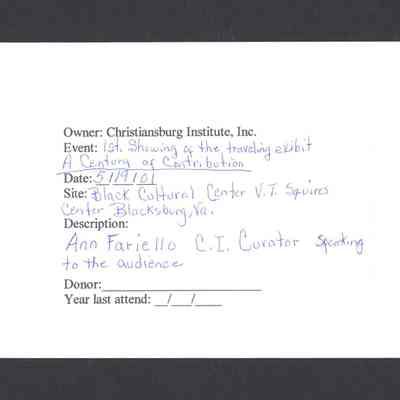 Owner: Christiansburg Institute, Inc.
Event: 1st. Showing of the traveling exibit
A Century of Contribution
Date: 5/19/01
Site: Black Cultural Center V.T. Squires
Center Blacksburg, Va.
Description:
Ann Fariello C.I. Curator Speaking
to the audience
Donor:
Year last attend: __/__/____